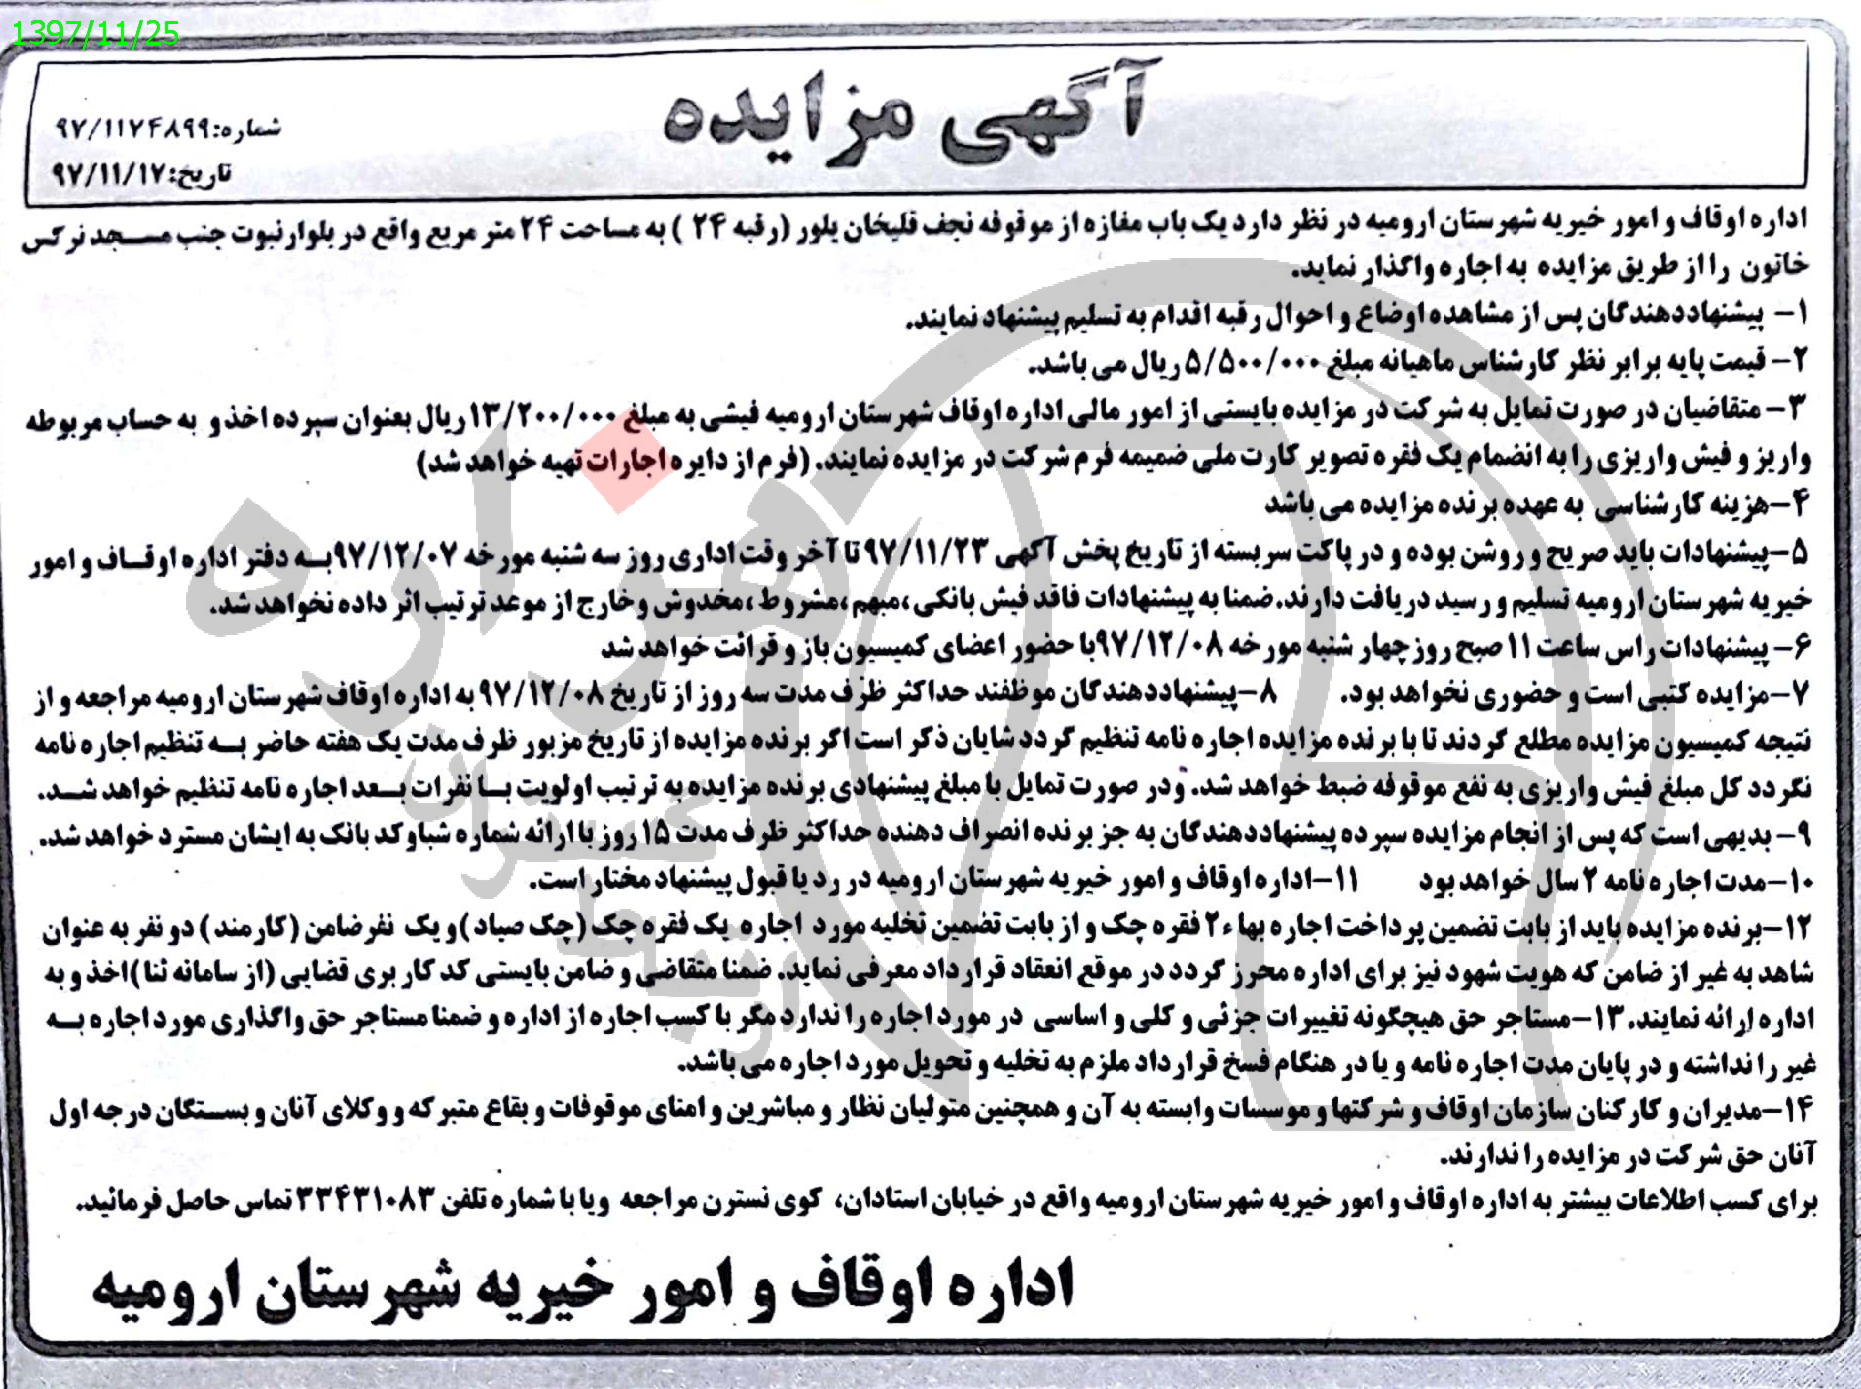 1397/11/25
آگهی مزایده
شماره:۹۷/۱۱۷۴۸۹۹
تاریخ:۹۷/۱۱/۱۷
اداره اوقاف و امور خیریه شهرستان ارومیه در نظر دارد یک باب مغازه از موقوفه نجف قلیخان یلور (رقبه ۲۴ ) به مساحت ۲۴ متر مربع واقع در بلوار نبوت جنب مسجد نرکس
خاتون را از طریق مزایده به اجاره واگذار نماید.
۱- پیشنهاددهندگان پس از مشاهده اوضاع و احوال رقبه اقدام به تسلیم پیشنهاد نمایند.
۲- قیمت پایه برابر نظر کارشناس ماهیانه مبلغ ۵/۵۰۰/۰۰۰ ریال می باشد.
۳- متقاضیان در صورت تمایل به شرکت در مزایده بایستی از امور مالی اداره اوقاف شهرستان ارومیه فیشی به مبلغ ۱۳/۲۰۰/۰۰۰ ریال بعنوان سپرده اخذ و به حساب مربوطه
واریز و فیش واریزی را به انضمام یک فقره تصویر کارت ملی ضمیمه فرم شرکت در مزایده نمایند. (فرم از دایره اجارات تهیه خواهد شد)
۴-هزینه کارشناسی به عهده برنده مزایده می باشد
۵-پیشنهادات باید صریح و روشن بوده و در پاکت سربسته از تاریخ پخش آگهی ۹۷/۱۱/۲۳ تا آخر وقت اداری روز سه شنبه مورخه ۹۷/۱۲/۰۷ به دفتر اداره اوقاف و امور
خیریه شهرستان ارومیه تسلیم و رسید دریافت دارند.ضمنا به پیشنهادات فاقد فیش بانکی ،مبهم ،مشروط ،مخدوش وخارج از موعد ترتیب اثر داده نخواهد شد.
۶- پیشنهادات راس ساعت ۱۱ صبح روز چهار شنبه مورخه ۹۷/۱۲/۰۸با حضور اعضای کمیسیون باز و قرائت خواهد شد
۷-مزایده کتبی است و حضوری نخواهد بود. ۸-پیشنهاددهندگان موظفند حداکثر ظرف مدت سه روز از تاریخ ۹۷/۱۲/۰۸ به اداره اوقاف شهرستان ارومیه مراجعه و از
نتیجه کمیسیون مزایده مطلع گردند تا با برنده مزایده اجاره نامه تنظیم گردد شایان ذکر است اگر برنده مزایده از تاریخ مزبور ظرف مدت یک هفته حاضر به تنظیم اجاره نامه
نگردد کل مبلغ فیش واریزی به نفع موقوفه ضبط خواهد شد. ودر صورت تمایل با مبلغ پیشنهادی برنده مزایده به ترتیب اولویت با نفرات بعد اجاره نامه تنظیم خواهد شد.
۹- بدیهی است که پس از انجام مزایده سپرده پیشنهاددهندگان به جز برنده انصراف دهنده حداکثر ظرف مدت ۱۵ روز با ارائه شماره شباو کد بانک به ایشان مسترد خواهد شد.
۱۰-مدت اجاره نامه ۲ سال خواهد بود ۱۱-اداره اوقاف و امور خیریه شهرستان ارومیه در رد یا قبول پیشنهاد مختار است.
۱۲-برنده مزایده باید از بابت تضمین پرداخت اجاره بهاء ۲ فقره چک و از بابت تضمین تخلیه مورد اجاره یک فقره چک (چک صیاد)و یک نفر ضامن (کارمند) دو نفر به عنوان
شاهد به غیر از ضامن که هویت شهود نیز برای اداره محرز گردد در موقع انعقاد قرارداد معرفی نماید. ضمنا متقاضی و ضامن بایستی کد کاربری قضایی (از سامانه ثنا)اخذ و به
اداره ارائه نمایند. ۱۳-مستاجر حق هیچگونه تغییرات جزئی و کلی و اساسی در مورد اجاره را ندارد مگر با کسب اجازه از اداره و ضمنا مستاجر حق واگذاری مورد اجاره به
غیر را نداشته و در پایان مدت اجاره نامه و یا در هنگام فسخ قرارداد ملزم به تخلیه و تحویل مورد اجاره می باشد.
۱۴-مدیران و کارکنان سازمان اوقاف و شرکتها و موسسات وابسته به آن و همچنین متولیان نظار و مباشرین و امنای موقوفات و بقاع متبرکه و وکلای آنان و بستگان درجه اول
آنان حق شرکت در مزایده را ندارند.
برای کسب اطلاعات بیشتر به اداره اوقاف و امور خیریه شهرستان ارومیه واقع در خیابان استادان، کوی نسترن مراجعه ویا با شماره تلفن ۳۳۴۳۱۰۸۳ تماس حاصل فرمائید.
اداره اوقاف و امور خیریه شهرستان ارومیه